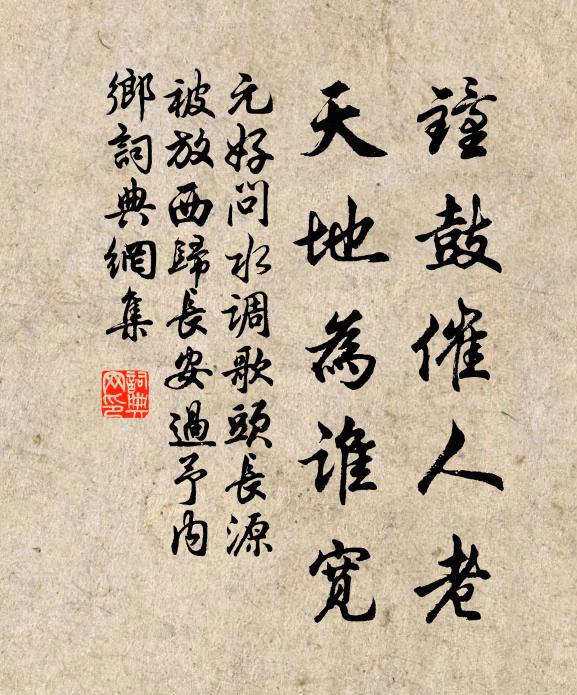 鐘鼓催人老
天地為誰寬
元好問水调歌頭長源
被放西歸長安過予内
鄉詞典網集
詞典
网印